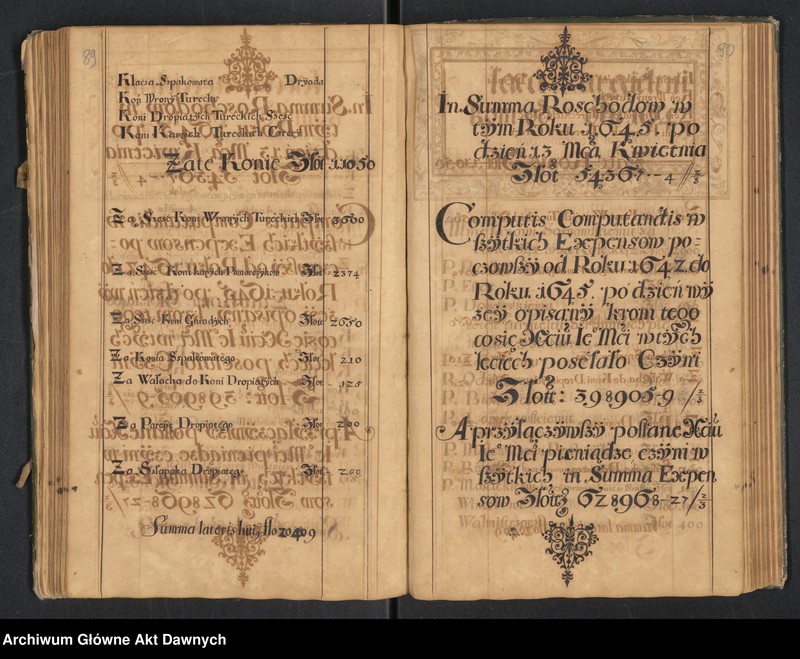 89
Klacza Szpakowata Dryada
Koń Wrony Turecki
Koni Dropiatych Tureckich Sześć
Koni Karych Tureckich
Zate Konie Złot 11050
Za Sześć Koni Wronych Tureckich Złot 3600
Za Sześć Koni karych Złot 2374
Za Sześć Koni Gniadych Złot 2650
Za Konia Szpakowatego Złot 210
Za Wałacha do Koni Dropiatych Złot 325
Za Dropiatego Złot 200
Za Szłapaka Dropiatego Złot 200
Summa lateris huiꝰ flo 20409
90
In Summa Roschodow w
tÿm Roku 1645. po
dzień 13 Mcå Kwietnia
Złot 54367 - 4 /⅔
Computis Computandis w
szÿtkich Expensow po-
czowszÿ od Roku 1642. do
Roku 1645. po dzień wÿ
zeÿ opisanÿ krom tego
cosię Xciu Ie° Mći wtÿch
leciech posełało Czÿni
Złott: 398905. 9 /⅔
A przÿłączÿwszÿ posłane Xciu
Ie° Mći pieniądze czÿni w
szÿtkich in Summa Expen
sow Złotÿ 628968 - 27 /⅔
Archiwum Główne Akt Dawnych